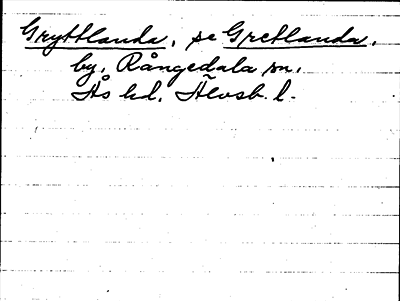 Gryttlanda, se Gretlanda,
by, Rångedala sn,
Ås hd, Älvsb. l.